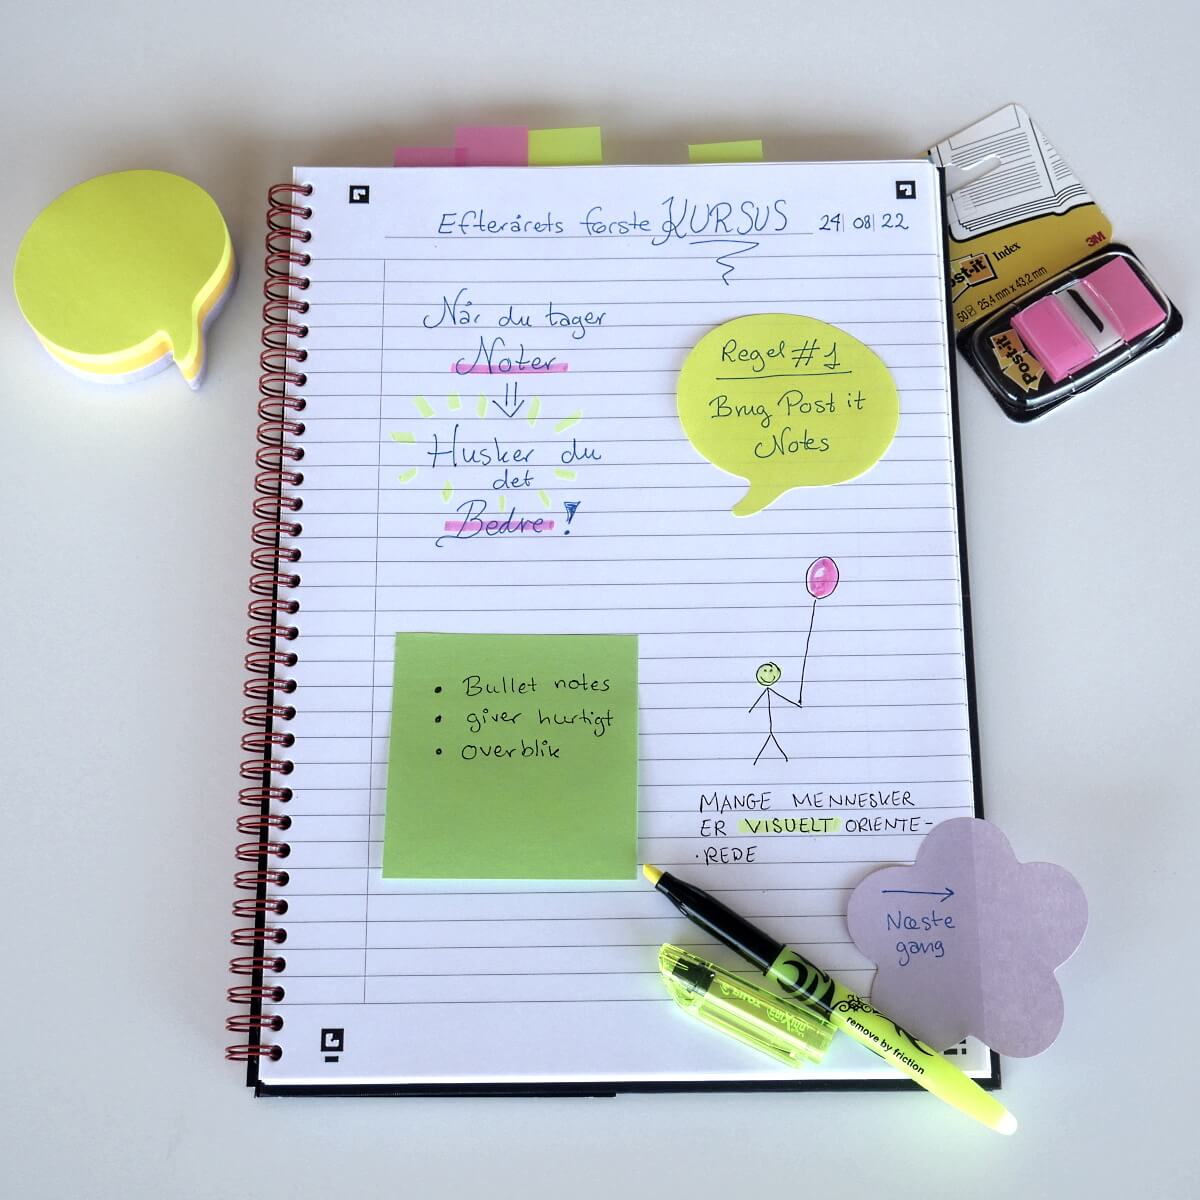 Efterårets første KURSUS 24|08|22
Når du tager
Noter
Husker du
det
Bedre!
Regel #1
Brug Post it
Notes
• Bullet notes
• giver hurtigt
• overblik
MANGE MENNESKER
ER VISUELT ORIENTE-
-REDE
Næste
gang
remove by friction
Post-it Index
3M
50 25,4 mm x 43,2 mm
Post-it